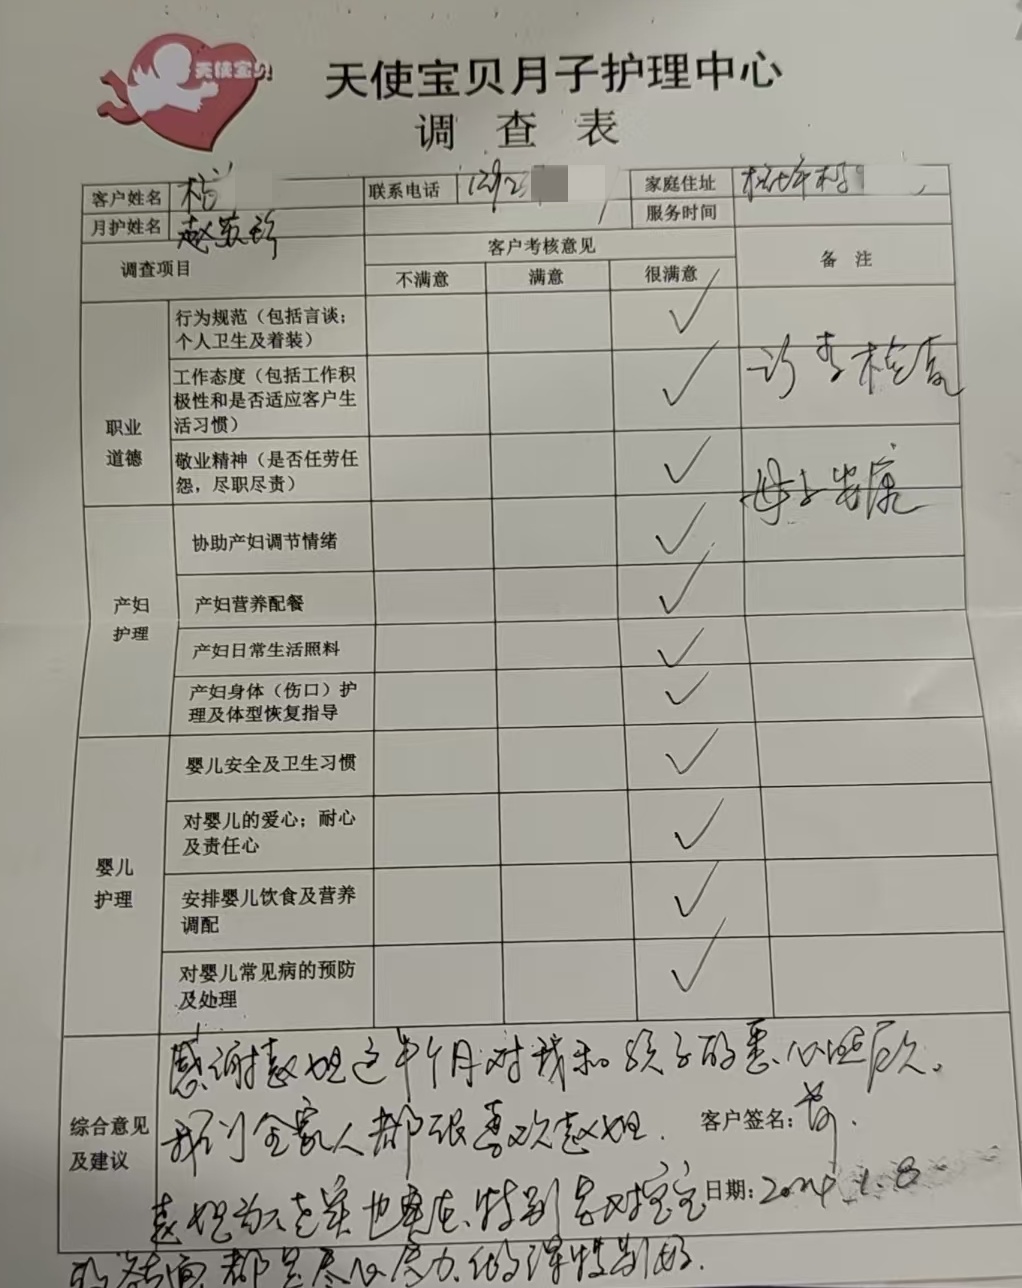 天使宝贝
天使宝贝月子护理中心
调查表
客户姓名
联系电话
家庭住址
月护姓名 赵
服务时间
调查项目
客户考核意见
备注
不满意 满意 很满意
职业
道德
行为规范（包括言谈；
个人卫生及着装）
工作态度（包括工作积
极性和是否适应客户生
活习惯）
敬业精神（是否任劳任
怨，尽职尽责）
母子安康
产妇
护理
协助产妇调节情绪
产妇营养配餐
产妇日常生活照料
产妇身体（伤口）护
理及体型恢复指导
婴儿
护理
婴儿安全及卫生习惯
对婴儿的爱心；耐心
及责任心
安排婴儿饮食及营养
调配
对婴儿常见病的预防
及处理
综合意见
及建议
感谢赵姐这半个月对我和孩子的悉心照顾。
我们全家人都很喜欢赵姐.
客户签名：
赵姐为人老实也实在、特别是对宝宝
日期：2024.1.8
的 方面 都是尽心尽力、做得特别好.